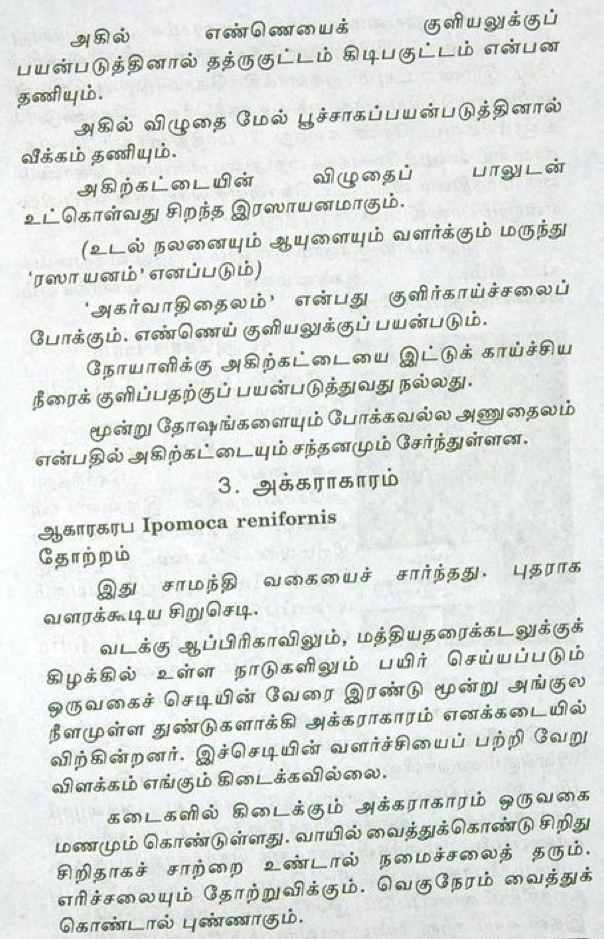 அகில் எண்ணெயைக் குளியலுக்குப்
பயன்படுத்தினால் தத்ருகுட்டம் கிடிபகுட்டம் என்பன
தணியும்.
அகில் விழுதை மேல் பூச்சாகப்பயன்படுத்தினால்
வீக்கம் தணியும்.
அகிற்கட்டையின் விழுதைப் பாலுடன்
உட்கொள்வது சிறந்த இரஸாயனமாகும்.
(உடல் நலனையும் ஆயுளையும் வளர்க்கும் மருந்து
'ரஸாயனம்' எனப்படும்)
'அகர்வாதிதைலம்' என்பது குளிர்காய்ச்சலைப்
போக்கும். எண்ணெய் குளியலுக்குப் பயன்படும்.
நோயாளிக்கு அகிற்கட்டையை இட்டுக் காய்ச்சிய
நீரைக் குளிப்பதற்குப் பயன்படுத்துவது நல்லது.
மூன்று தோஷங்களையும் போக்கவல்ல அணுதைலம்
என்பதில் அகிற்கட்டையும் சந்தனமும் சேர்ந்துள்ளன.
3. அக்கராகாரம்
ஆகாரகரப Ipomoca renifornis
தோற்றம்
இது சாமந்தி வகையைச் சார்ந்தது. புதராக
வளரக்கூடிய சிறுசெடி.
வடக்கு ஆப்பிரிகாவிலும், மத்தியதரைக்கடலுக்குக்
கிழக்கில் உள்ள நாடுகளிலும் பயிர் செய்யப்படும்
ஒருவகைச் செடியின் வேரை இரண்டு மூன்று அங்குல
நீளமுள்ள துண்டுகளாக்கி அக்கராகாரம் எனக்கடையில்
விற்கின்றனர். இச்செடியின் வளர்ச்சியைப் பற்றி வேறு
விளக்கம் எங்கும் கிடைக்கவில்லை.
கடைகளில் கிடைக்கும் அக்கராகாரம் ஒருவகை
மணமும் கொண்டுள்ளது. வாயில் வைத்துக்கொண்டு சிறிது
சிறிதாகச் சாற்றை உண்டால் நமைச்சலைத் தரும்.
எரிச்சலையும் தோற்றுவிக்கும். வெகுநேரம் வைத்துக்
கொண்டால் புண்ணாகும்.